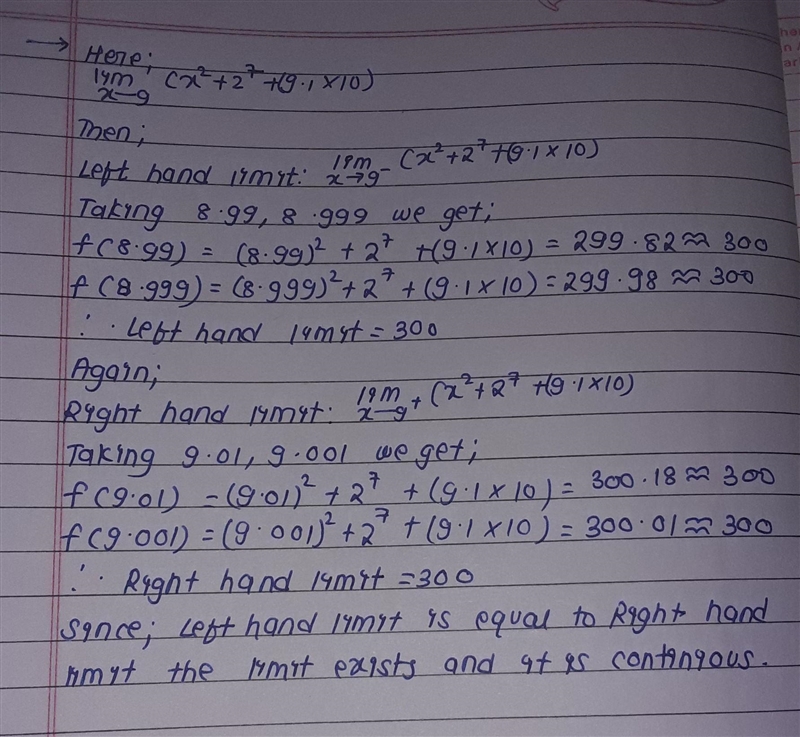 → Here;
lim x→9 (x² + 2⁷ + (9.1 × 10)
Then;
Left hand limit: lim x→9⁻ (x² + 2⁷ + (9.1 × 10)
Taking 8.99, 8.999 we get;
f(8.99) = (8.99)² + 2⁷ + (9.1 × 10) = 299.82 ≈ 300
f(8.999) = (8.999)² + 2⁷ + (9.1 × 10) = 299.98 ≈ 300
∴ Left hand limit = 300
Again;
Right hand limit: lim x→9⁺ (x² + 2⁷ + (9.1 × 10)
Taking 9.01, 9.001 we get;
f(9.01) = (9.01)² + 2⁷ + (9.1 × 10) = 300.18 ≈ 300
f(9.001) = (9.001)² + 2⁷ + (9.1 × 10) = 300.01 ≈ 300
∴ Right hand limit = 300
Since; Left hand limit is equal to Right hand
limit the limit exists and it is continous.